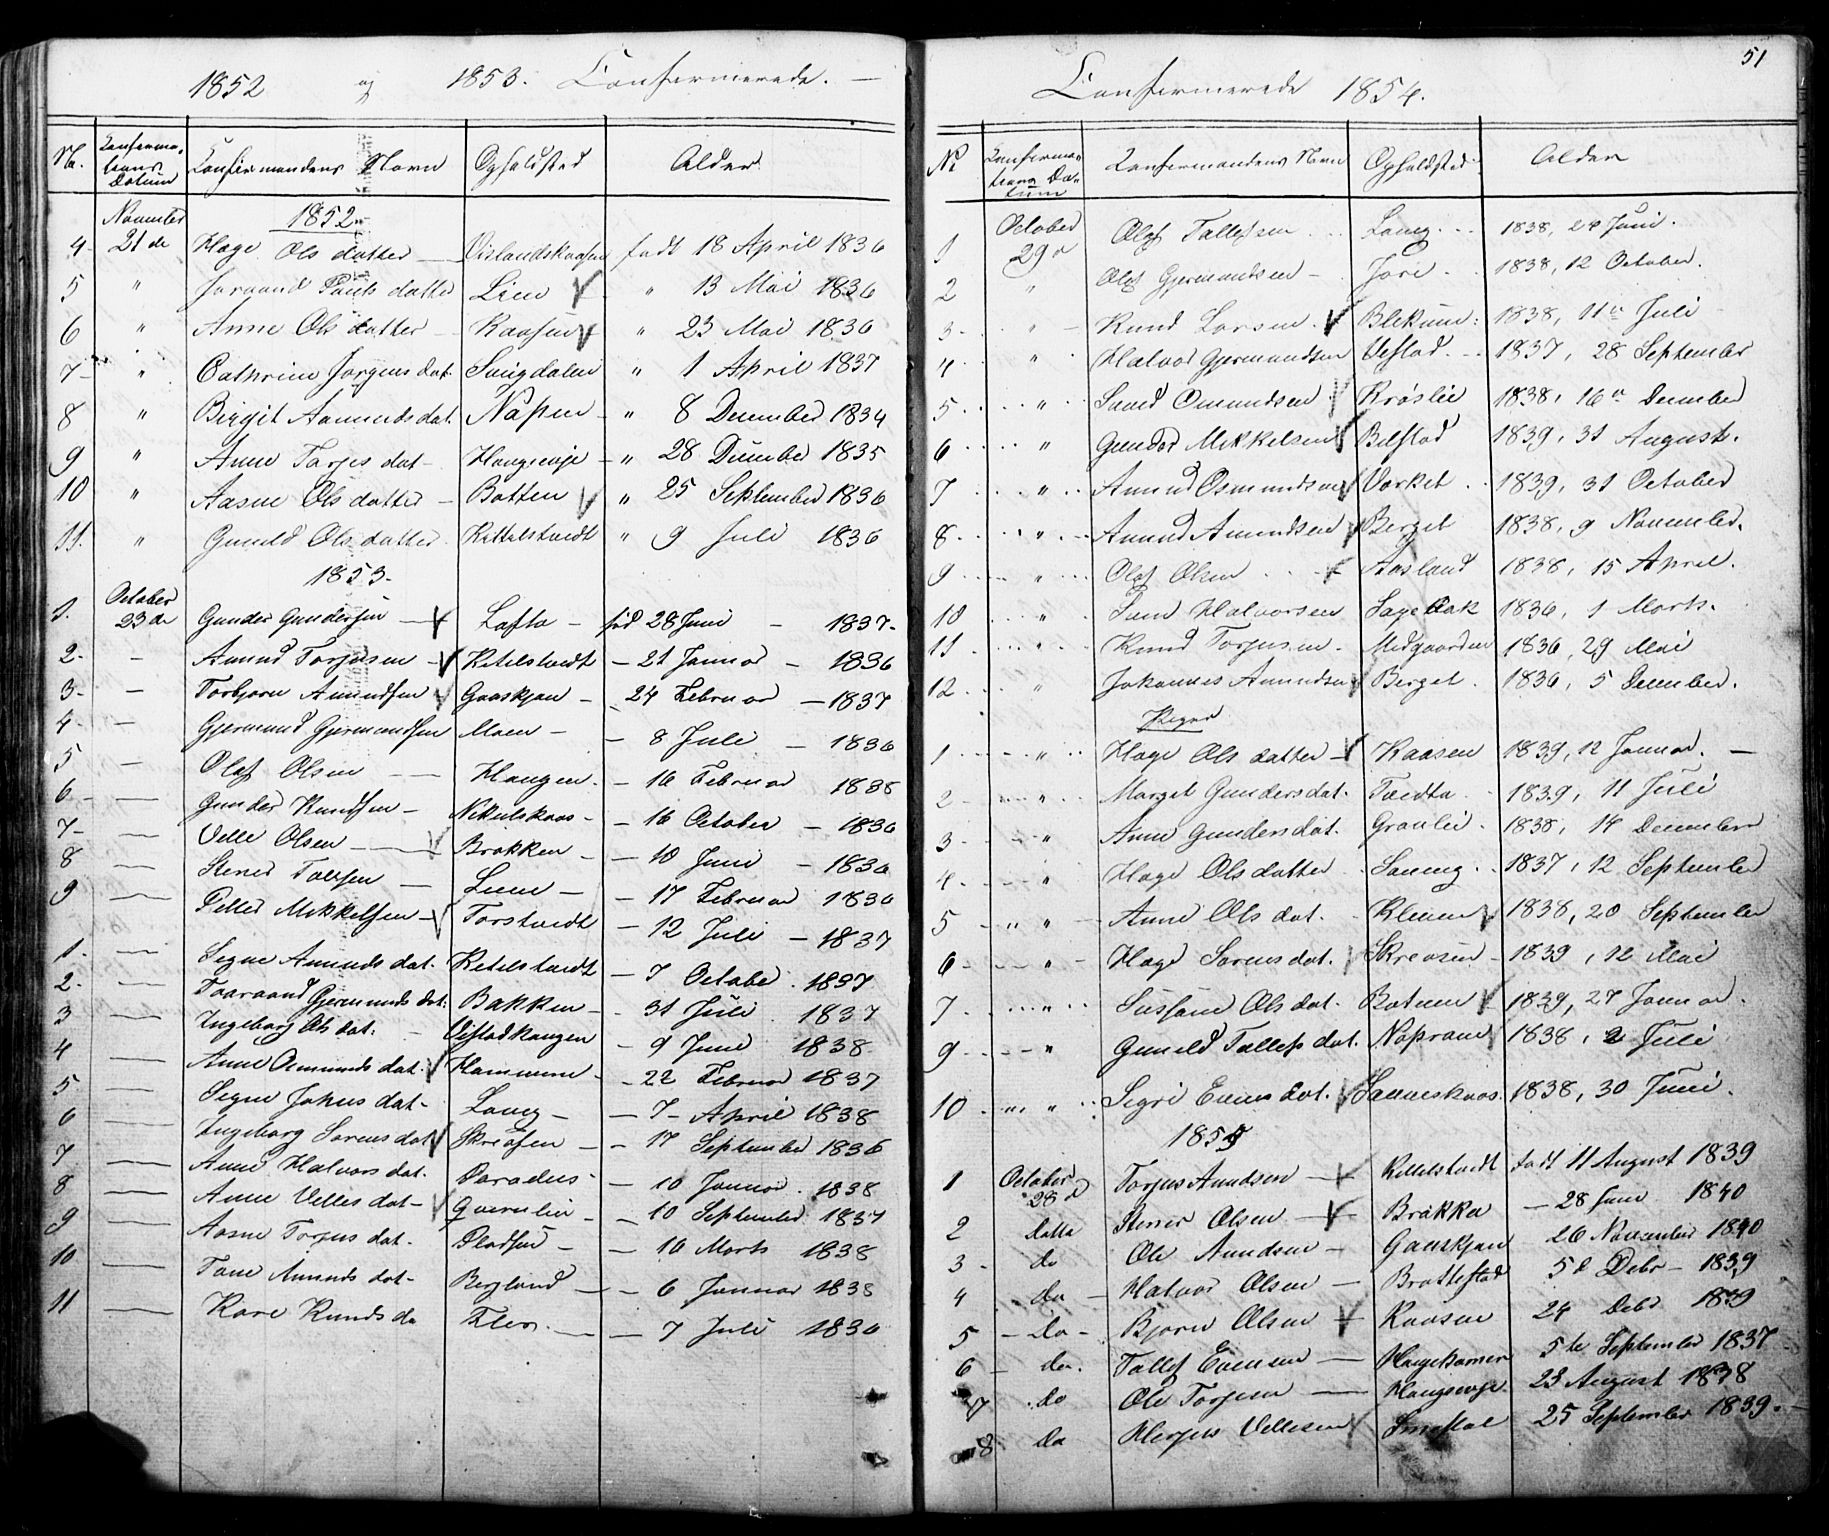 1852 og 1853. Confirmerede. —
No. Confirmations Datum Confirmandens Navn Opholdsted Alder
1852
4- November 21de Hæge Ols datter — født 18 April 1836
5 " Pauls datter Lien " 13 Mai 1836
6 " Anne Ols datter — Kaasen " 23 Mai 1836
7- " Cathrine Jørgens dat. " 1 April 1837
8 " Birgit Aamunds dat. Napen — " 8 December 1834
9 " Anne Tarjes dat — — " 28 December 1835
10 " Aasne Ols datter — Botten " 25 September 1836
11. " Gunild Ols datter Kittelstvedt " 9 Juli 1836
1853.
1. October 23de Gunder Gundersen — Lofto — fød 28 Juni — 1837-
2- — Amund Torjusen — Ketelstvedt — 21 Januar — 1836
3- — Torbjørn Amundsen Gaaskjøn — 24 Februar — 1837
4- — Gjermund Gjermundsen Moen — — 8 Juli — 1836
5 — Olaf Olsen — Haugen — 16 Februar 1838
6- — Gunder Knudsen — — 16 October — 1836
7- — Velle Olsen — Brokken — — 10 Juni — 1836
8 — Stener Liene — — 17 Februar 1836
9 — Petter Mikkelsen — Torstvedt — 12 Juli — 1837
1- — Signe Amunds dat. Ketelstvedt — 7 October 1837
2- — Gjermunds dat. Bakken — — 31 Juli 1837
3 — Ingeborg Ols dat. — Vefstadhaugen — 9 Juni 1838
4 — Anne Osmunds dat. — 22 Februar 1837
5 — Signe Johns dat — Laang — — 7 — April 1838
6 — Ingeborg Sørens dat Skreosen — — 17 September 1836
7 — Anne Halvors dat. Paradus — 10 Januar 1838
8 — Anne Velles dat — Qvernlien — — 10 September 1837
9 — Aasne Torjus dat. — — 16 Marts 1838
10 — Tone Amunds dat — Bergland — — 6 Januar 1838
11 — Kare Knuds da — — 7 Juli 1836
51
Confirmerede 1854.
Nr Confirmations Datum Confirmandens Navn Opholdsted Alder
1 October 29de Olaf Tallefsen Laang 1838, 24 Juni.
2 " Olaf Gjermundsen — Jore 1838, 12 October.
3- " — Knud Larsen 1838, 11te Juli
4- " Halvor Gjermundsen Vefstad 1837, 28 September
5 " Svend Omundsen Krøslie 1838, 16de December
6 " Gunder Mikkelsen Bøfstad 1839, 31 August.
7 " Amund Osmundsen Vorket 1839, 31 October
8- " Amund Amundsen Berget 1838, 9 November.
9 " Olaf Olsen Aasland 1838, 15 April.
10 " Halvorsen Sagebak 1836, 1 Marts.
11 " Knud Torjusen Midgaarden 1836, 29 Mai
12 " Johannes Amundsen Berget 1836, 5 December.
Piger
1 " Hæge Ols datter — Kaasen 1839, 12 Januar. —
2 " Marget Gunders dat. Tvedta 1839, 11 Juli
3- " Anne Gunders dat. Graalie 1838, 14 December
4- " Hæge Ols datter 1837, 12 September
5 " Anne Ols dat. 1838, 20 September
6 " Hæge Sørens dat. Skreosen 1839, 12 Mai
7 " Susfane Ols dat. Botnen 1839, 27 Januar.
9 " Gunild Tallefs dat. Naprane 1838, 2 Juli
10 " Sigri Evens dat. 1838, 30 Juni.
1855
1 October 28d Torjus Amdsen — Kittelstvedt født 11 August 1839
2 datto Stener Olsen — Brokka — 28 Juni 1840
3- do Ole Amdsen — Gaaskjøn 26 November 1840
4 do — Halvor Olsen — Brattestad 5d Debr — 1839
5 — Do — Bjørn Olsen Kaasen 24 Debr 1839
6 — do. Tallef Evensen — 5te September 1837
7 do Ole Torjusen — 23 August 1838
8 Do Herjus Vellesen 25 September 1839.